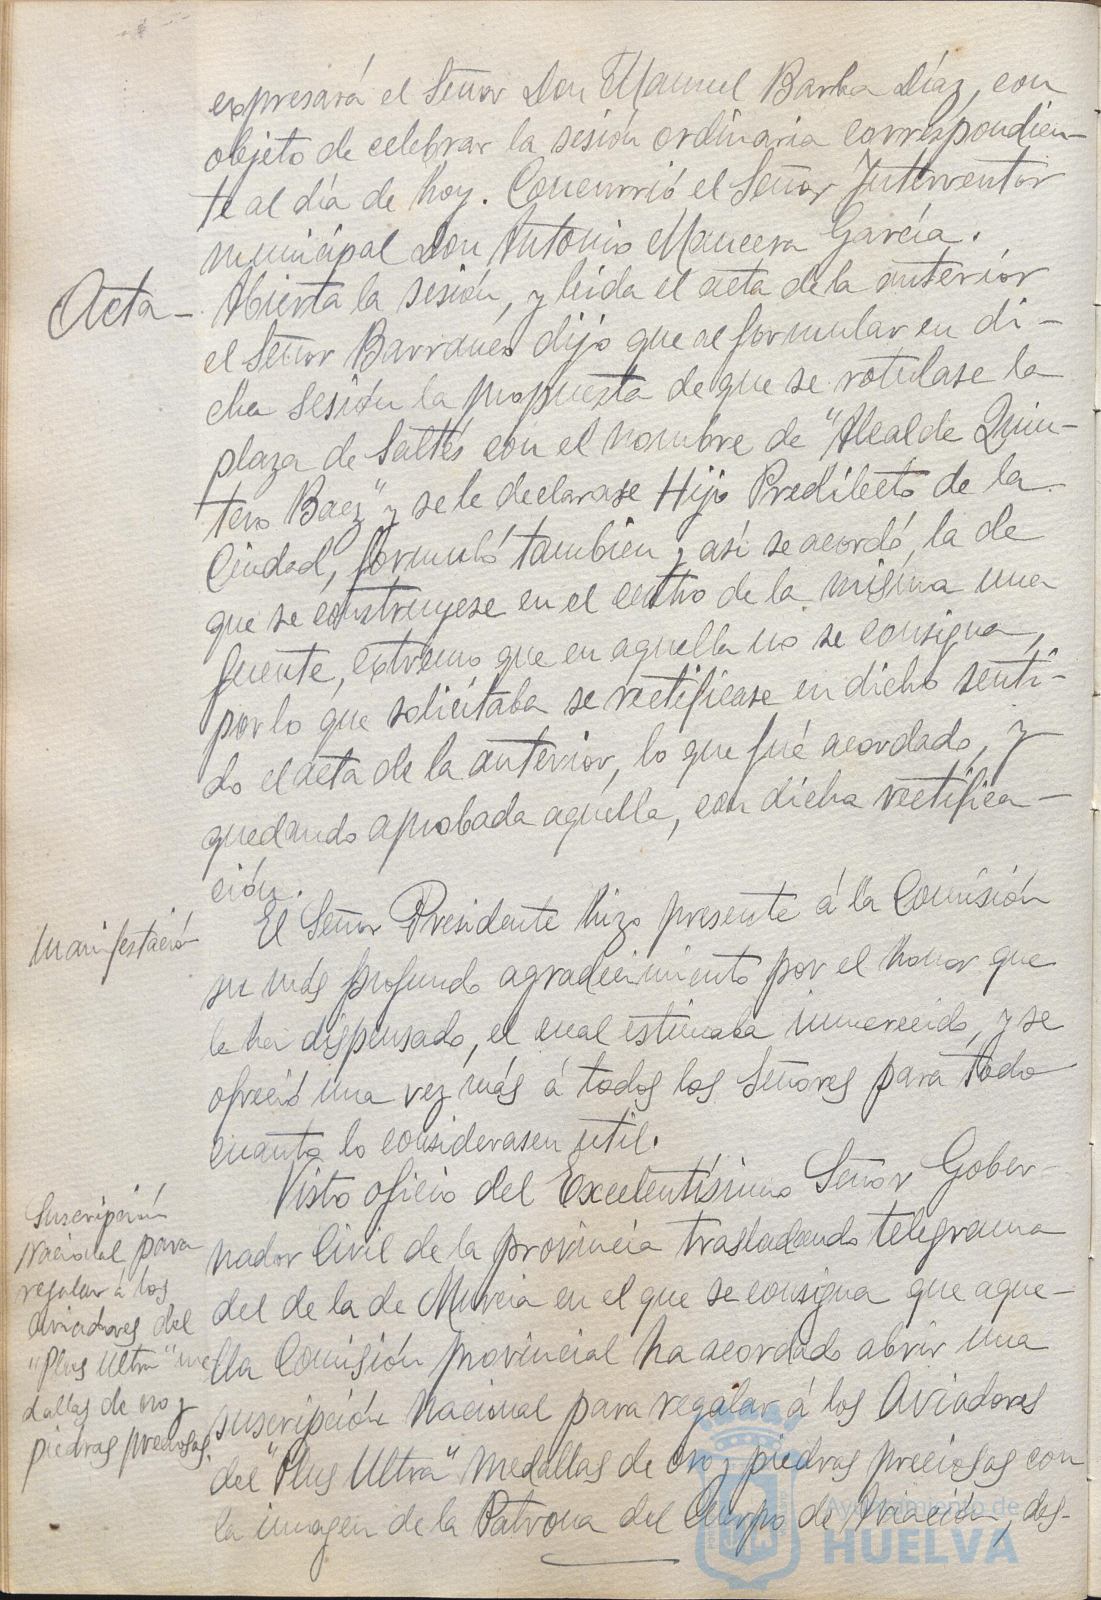 expresará el Señor Don Manuel Barba Díaz, con
objeto de celebrar la sesión ordinaria correspondien-
te al día de hoy. Concurrió el Señor Interventor
municipal Don Antonio Mancera García.
Acta- Abierta la sesión, y leida el acta de la anterior
el Señor Barranco dijo que al formular en di-
cha sesión la propuesta de que se rotulase la
plaza de Saltés con el nombre de "Alcalde Quin-
tero Baez" y se le declarase Hijo Predilecto de la
Ciudad, formuló también, y así se acordó, la de
que se construyese en el centro de la misma una
fuente, extremo que en aquella no se consigna,
por lo que solicitaba se rectificase en dicho senti-
do el acta de la anterior, lo que fué acordado, y
quedando aprobada aquella, con dicha rectifica-
ción.
Manifestación
El Señor Presidente hizo presente á la Comisión
su más profundo agradecimiento por el honor que
le ha dispensado, el cual estimaba inmerecido, y se
ofreció una vez más á todos los Señores para todo
cuanto lo considerasen util.
Suscripción
Nacional para
regalar á los
aviadores del
"Plus Ultra" me-
dallas de oro y
piedras preciosas.
Visto oficio del Excelentísimo Señor Gober-
nador Civil de la provincia trasladando telegrama
del de la de Murcia en el que se consigna que aque-
lla Comisión provincial ha acordado abrir una
suscripción Nacional para regalar á los Aviadores
del "Plus Ultra" medallas de oro y piedras preciosas con
la imagen de la Patrona del Cuerpo de Aviación, des-
Ayuntamiento de
HUELVA